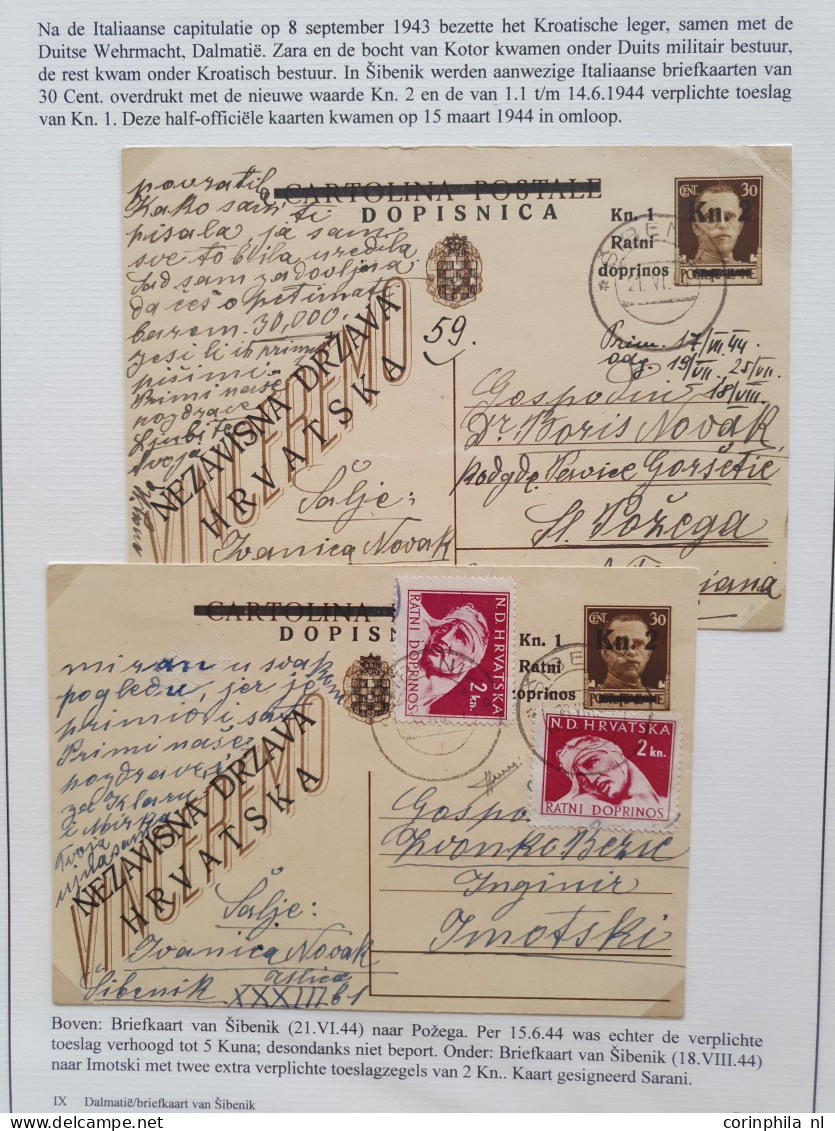 Na de Italiaanse capitulatie op 8 september 1943 bezette het Kroatische leger, samen met de
Duitse Wehrmacht, Dalmatië. Zara en de bocht van Kotor kwamen onder Duits militair bestuur,
de rest kwam onder Kroatisch bestuur. In Šibenik werden aanwezige Italiaanse briefkaarten van
30 Cent. overdrukt met de nieuwe waarde Kn. 2 en de van 1.1 t/m 14.6.1944 verplichte toeslag
van Kn. 1. Deze half-officiële kaarten kwamen op 15 maart 1944 in omloop.
CARTOLINA POSTALE
DOPISNICA
Kn. 1
Ratni
doprinos
CENT. 30
Kn. 2
21.VI.
povratil
Kako sam ti
pisala, ja sam
sve to bila uredila
Sad sam zadovoljna
da ćeš o
barem 30,000.
Jesi li ih primio
piši mi.
Primi naše
pozdrave
Ljubi te
Tvoja
NEZAVISNA DRŽAVA
HRVATSKA
VINCEREMO
59.
Prim. 17/VII.44.
odg. 19/VII. 25/VII.
18/VIII.
Gospodin
Dr. Boris Novak
Sl. Požega
Šalje:
Ivanica Novak
CARTOLINA
DOPISN
Kn. 1
Ratni
doprinos
CENT. 30
Kn. 2
N.D. HRVATSKA
2 kn.
RATNI DOPRINOS
N.D. HRVATSKA
2 kn.
RATNI DOPRINOS
miran u svakom
pogledu, jer je
primio i sat
Primi naše
pozdrave
za Klaru
i Mirka
Tvoja
NEZAVISNA DRŽAVA
HRVATSKA
VINCEREMO
Gospo
Zvonko Bezić
Inginir
Imotski
Šalje:
Ivanica Novak
Šibenik XXXIII b1
Boven: Briefkaart van Šibenik (21.VI.44) naar Požega. Per 15.6.44 was echter de verplichte
toeslag verhoogd tot 5 Kuna; desondanks niet beport. Onder: Briefkaart van Šibenik (18.VIII.44)
naar Imotski met twee extra verplichte toeslagzegels van 2 Kn.. Kaart gesigneerd Sarani.
IX Dalmatië/briefkaart van Šibenik
PostzegelsOnline
corinphila nl